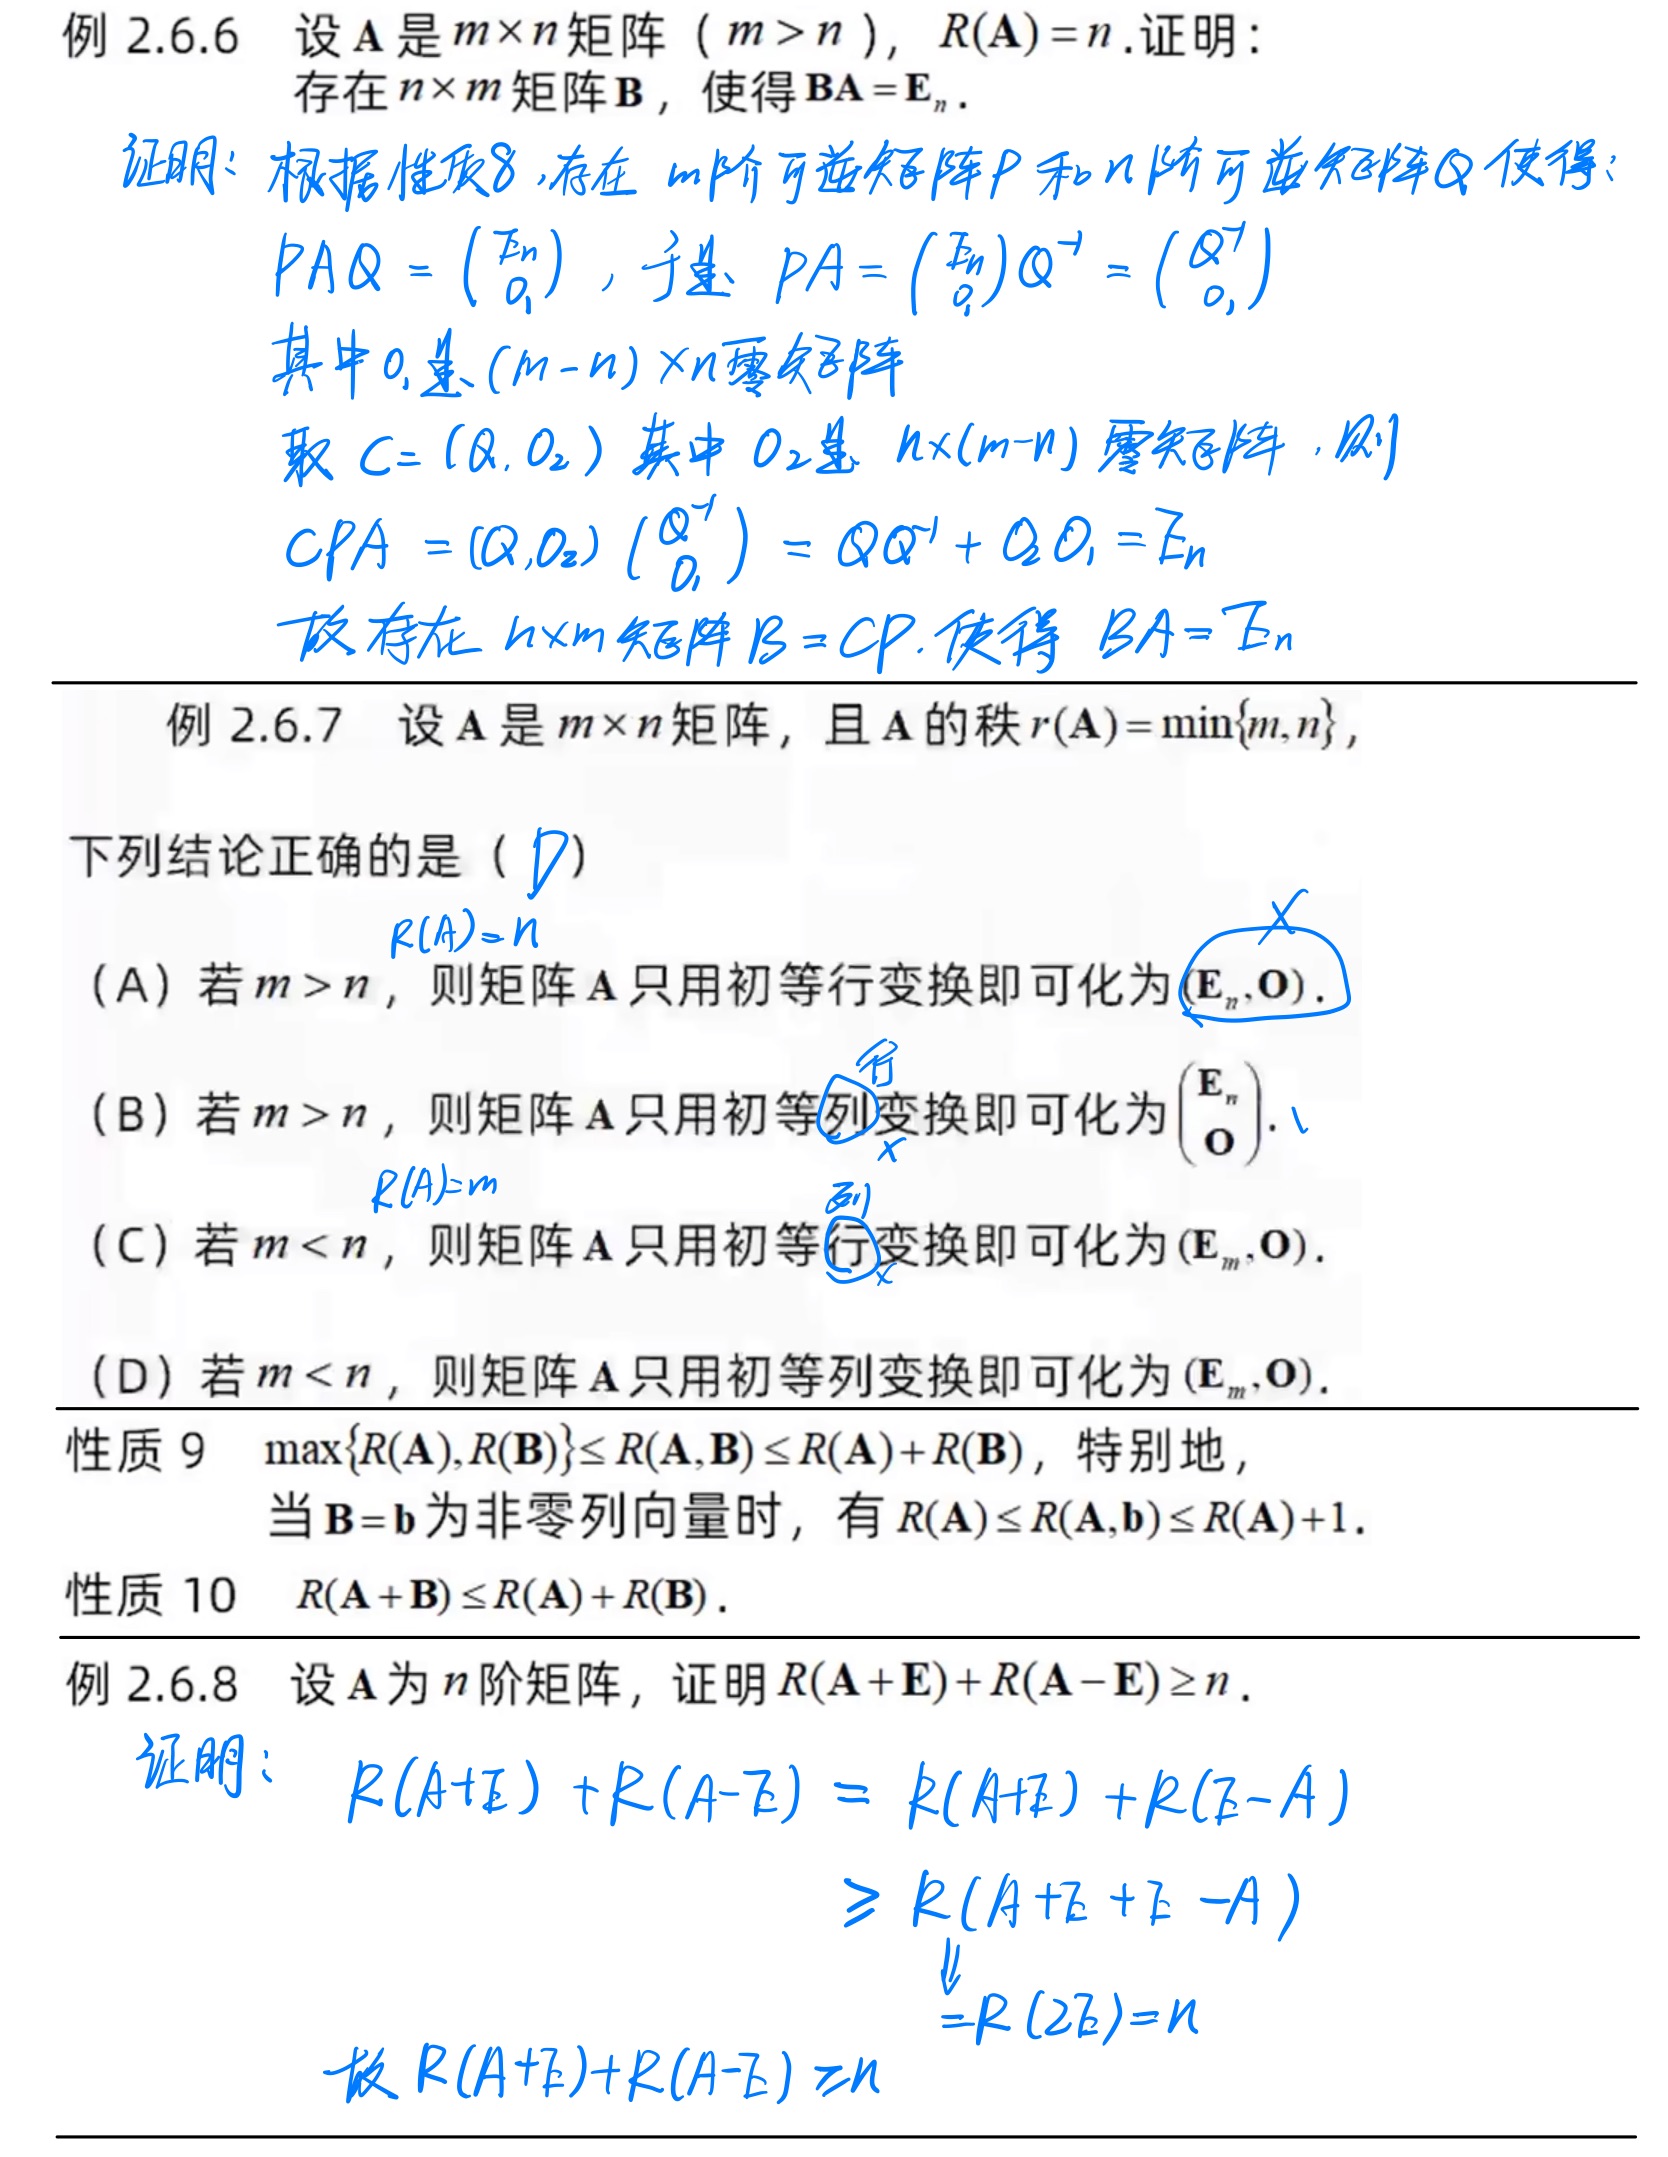 例 2.6.6 设 A 是 m×n 矩阵（m > n），R(A) = n .证明：
存在 n×m 矩阵 B，使得 BA = Eₙ .
证明：根据性质8,存在 m阶可逆矩阵P 和n阶可逆矩阵Q 使得：
PAQ = (Eₙ / O₁) , 于是 PA = (Eₙ / O₁)Q⁻¹ = (Q⁻¹ / O₁)
其中O₁是(m-n)×n零矩阵
取 C=(Q,O₂) 其中 O₂是 n×(m-n) 零矩阵,则
CPA = (Q,O₂)(Q⁻¹ / O₁) = QQ⁻¹ + O₂O₁ = Eₙ
故存在 n×m 矩阵B=CP.使得 BA=Eₙ
例 2.6.7 设 A 是 m×n 矩阵，且 A 的秩 r(A) = min{m, n}，
下列结论正确的是（ D ）
R(A)=n
×
（A）若 m > n，则矩阵 A 只用初等行变换即可化为 (Eₙ, O) .
行
（B）若 m > n，则矩阵 A 只用初等列变换即可化为 (Eₙ / O) .
×
R(A)=m
列
（C）若 m < n，则矩阵 A 只用初等行变换即可化为 (Eₘ, O) .
×
（D）若 m < n，则矩阵 A 只用初等列变换即可化为 (Eₘ, O) .
性质 9 max{R(A), R(B)} ≤ R(A, B) ≤ R(A) + R(B)，特别地，
当 B = b 为非零列向量时，有 R(A) ≤ R(A, b) ≤ R(A) + 1 .
性质 10 R(A + B) ≤ R(A) + R(B) .
例 2.6.8 设 A 为 n 阶矩阵，证明 R(A + E) + R(A − E) ≥ n .
证明：
R(A+E) + R(A-E) = R(A+E) + R(E-A)
≥ R(A+E+E-A)
⇓
=R(2E)=n
故 R(A+E)+R(A-E) ≥n